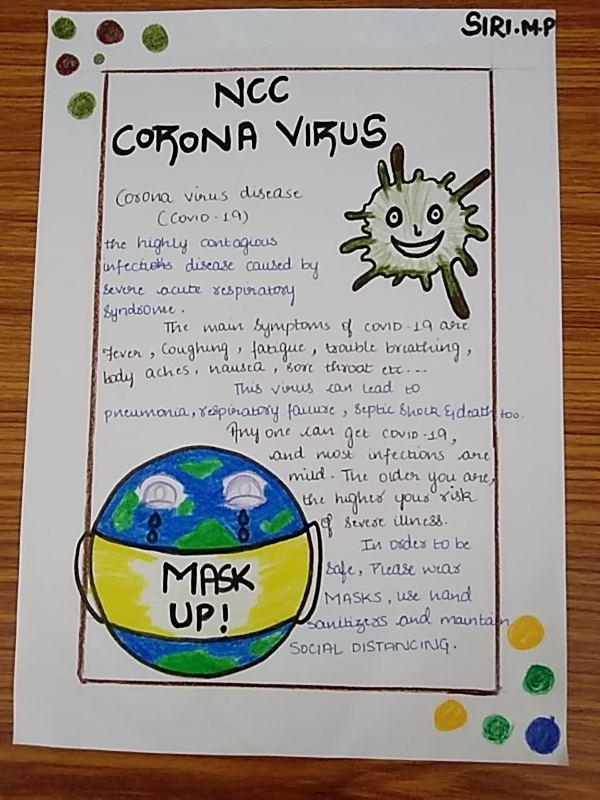 SIRI.M.P
NCC
CORONA VIRUS
Corona virus disease
(COVID-19)
the highly contagious
infectious disease caused by
severe acute respiratory
syndrome.
The main symptoms of COVID-19 are
fever, Coughing, fatigue, trouble breathing,
body aches, nausea, sore throat etc....
This virus can lead to
pneumonia, respiratory failure, septic shock & death too.
Any one can get COVID-19,
and most infections are
mild. The older you are,
the higher your risk
of severe illness.
In order to be
safe, Please wear
MASKS, use hand
sanitizers and maintain
SOCIAL DISTANCING.
MASK
UP!